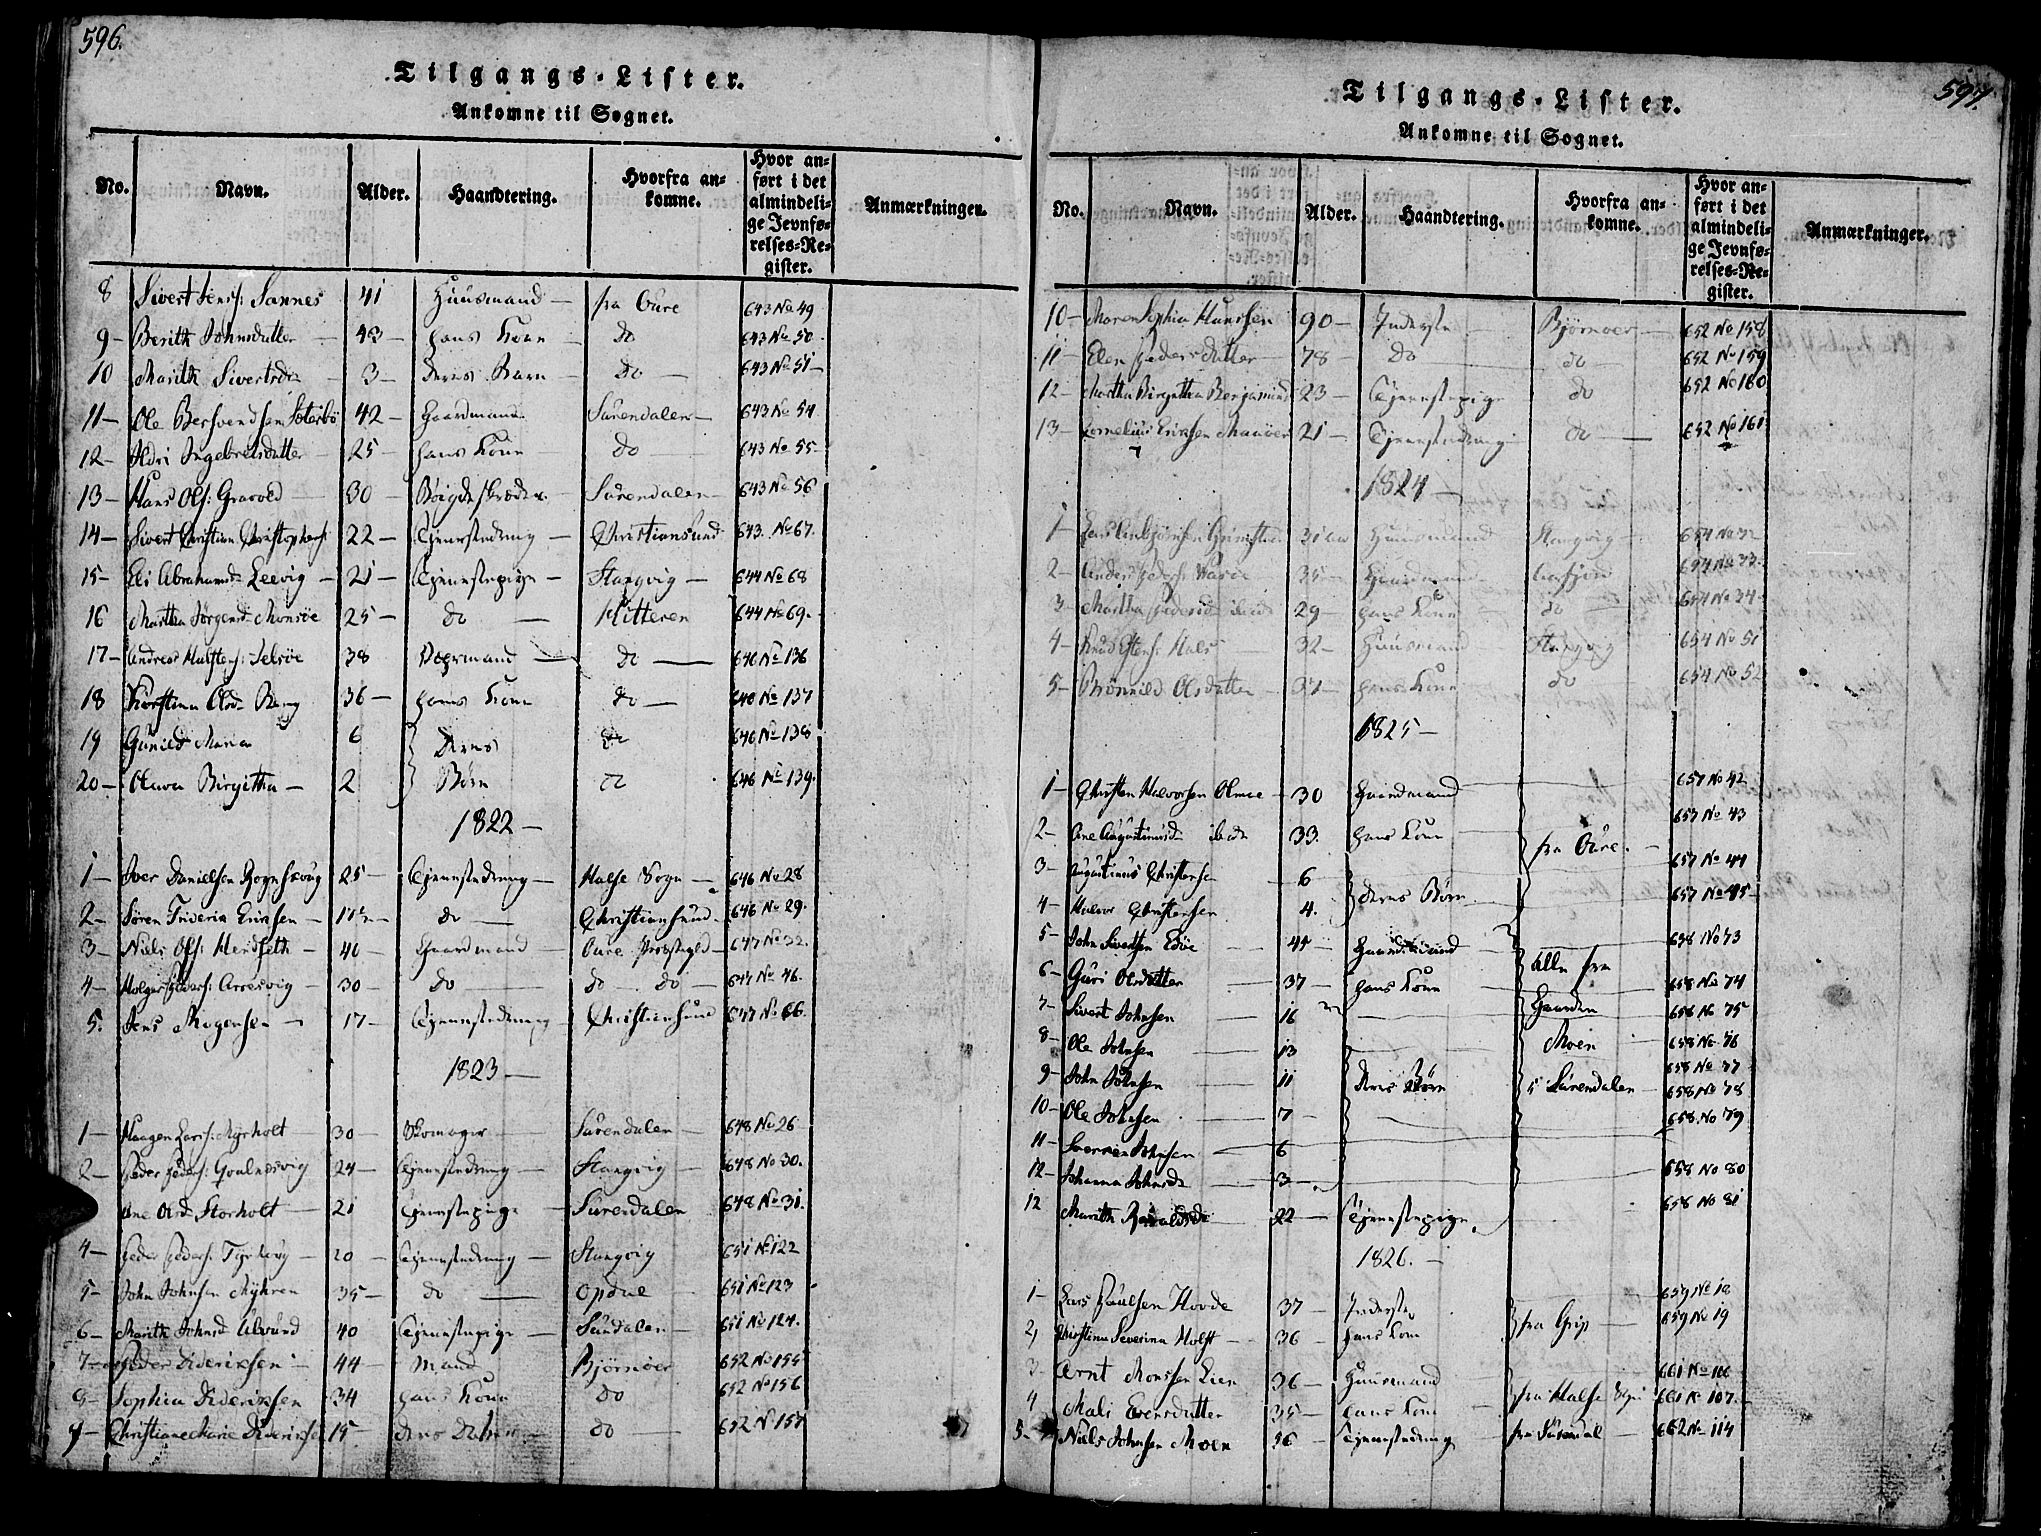 596.
Tilgangs-Lister.
Ankomne til Sognet.
No. Navn. Alder. Haandtering. Hvorfra ankomne. Hvor anført i det almindelige Jevnførelses-Register. Anmærkninger.
8 Sivert Jens: Sannes 41 Huusmand – fra Öure 643 No 49
9 – Berith Johnsdatter 43 – hans Kone – do 643 No 50
10 Marith Sivertsdr – 3 – deres Barn – do – 643 No 51 –
11 – Ole Bersvendsen 42 – Gaardmand Surendalen – 643 No 54
12 – Ildri Ingebretsdatter – 25 – hans Kone do 643 No 55 –
13 – Hans Ols: 30 – Surendalen – 643 No 56
14 – Sivert Christian Christophers: 22 – Tjenestedreng – Christiansund 643. No 67.
15 – Eli Abrahamsd: Leevig – 21 – Tjenestepige – Stangvig – 644 No 68
16 Martha Jørgensd: Monsöe 25 – do – Hitteren 644 No 69 –
17 – Andreas 38 do – 646 No 136
18 Kirstina Olsd: Berg 36 – hans Kone do – 646 No 137
19 Gunild Maria 6 } Deres do 646 No 138
20 – Olava Birgitha – 2 } Börn do 646 No 139.
1822 –
1 – Iver Danielsen 25 – Tjenestedreng – Halse Sogn – 646 No 28
2 – Sören Friderik Eriksen – 17½ – do – Christiansund – 646 No 29.
3 – Niels Ols: – 40 – Gaardmand – Öure 647 No 32.
4 – Holger Peders: Arresvig – 30 – do do do – 647 No 46.
5. Jens Mogensen – 17 – Tjenestedreng – Christiansund 647 No 66.
1823 –
1 – Haagen Lars: Myrholt 30 – Skomager – Surendalen – 648 No 26
2 – Peder Peders: 24 – Tjenestedreng – Stangvig – 648 No 30.
Ane Olsd: Storholt – 21 Tjenestepige – Surendalen 648 No 31.
4 – Peder Peders: – 20 – Tjenestedreng – Stangvig 651 No 122
5 – John Johnsen Myhren 35 – do – Opdal 651 No 123
6 – Marith Johnsd: Ulvund 40 Tjenestepige – Sundalen – 651 No 124.
7 – Peder Dideriksen – 44 – Mand Bjørnöer 652 No 155
8 – Sophia Dideriksen 34 hans Kone do 652 No 156
9 – Christiane Marie Dideriksen 15 – deres Datter – do – 652 No 157
597.
Tilgangs-Lister.
Ankomne til Sognet.
No. Navn. Alder. Haandtering. Hvorfra ankomne. Hvor anført i det almindelige Jevnførelses-Register. Anmærkninger.
10 – Maren Sophia Hanssen 90 – Inderste – Bjørnöer – 652 No 158
11 – Elen Pedersdatter – 78 – do do 652 No 159
12 – Martha Birgitha 23 – Tjenestepige do 652 No 160
13 – Cornelius Eriksen 21 – Tjenestedreng do – 652 No 161
1824 –
1 – 31 Huusmand Stangvig – 654 No 32
2 – Anders Peders: – 35 – Gaardmand 654 No 33.
3 – Martha Pedersd: ibidem 29 – hans Kone do – 654 No 34 –
4 – Knud Estens: Hals – 32 – Huusmand Stangvig 654 No 51
5 – Brönnild Olsdatter – 37 – hans Kone do – 654 No 52
1825 –
1 – Christen Halvorsen Olmoe – 30 Gaardmand 657 No 42
2 – Ane Augustinusd: ibide 33. hans Kone – 657 No 43
fra Öure. –
3 – Augustinus Christensen – 6 657 No 44
4 – Halvor Christensen – 4. } Deres Børn – 657 No 45 –
5 – John Sivertsen – 44 – Gaardmand – 658 No 73
Alle fra
6 – Guri Olsdatter 37 – hans Kone 658 No 74
7 – Sivert Johnsen – 16 Gaarden 658 No 75
8 – Ole Johnsen – 13 Moen 658 No 76
9 – John Johnsen – 11 } Deres Börn i Surendalen – 658 No 77
658 No 78
10 – Ole Johnsen – 7 – 658 No 79
11 – Johnsen – 6
12 – Johanna Johnsd: – 3 – 658 No 80
12 Marith – 22 – Tjenestepige. 658 No 81
1826. –
1 – Lars Paulsen Hovde 37 – Inderste 659 No 18
fra Grip –
2, Christina Severina Holst – 36 – hans Kone 659 No 19
3 – Arnt Monssen Lien 36 – Huusmand 661 No 106
4 Mali Evensdatter 35 – hans Kone – fra Halse Sogn 661 No 107 –
5 – Niels Johnsen Moen 16 – Tjenestedreng fra Surendal – 662 No 114